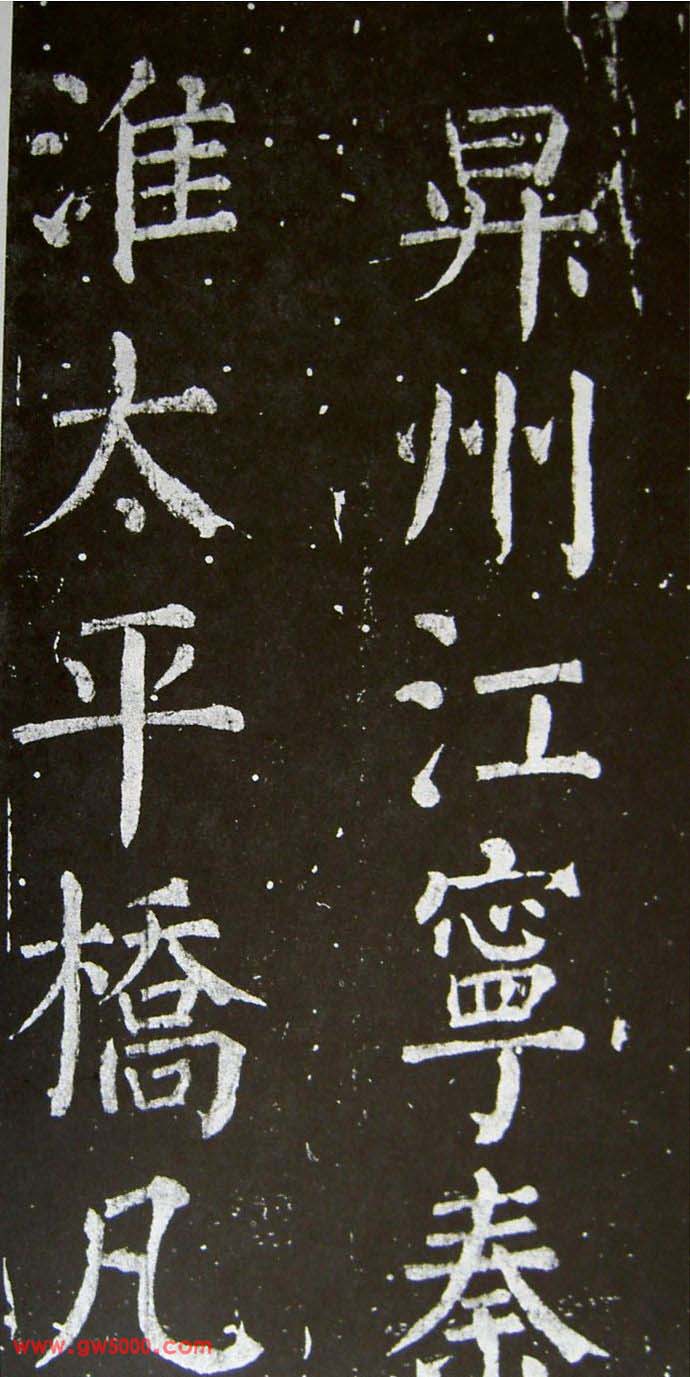 昇州江寧秦
淮太平橋凡
www.gw5000.com